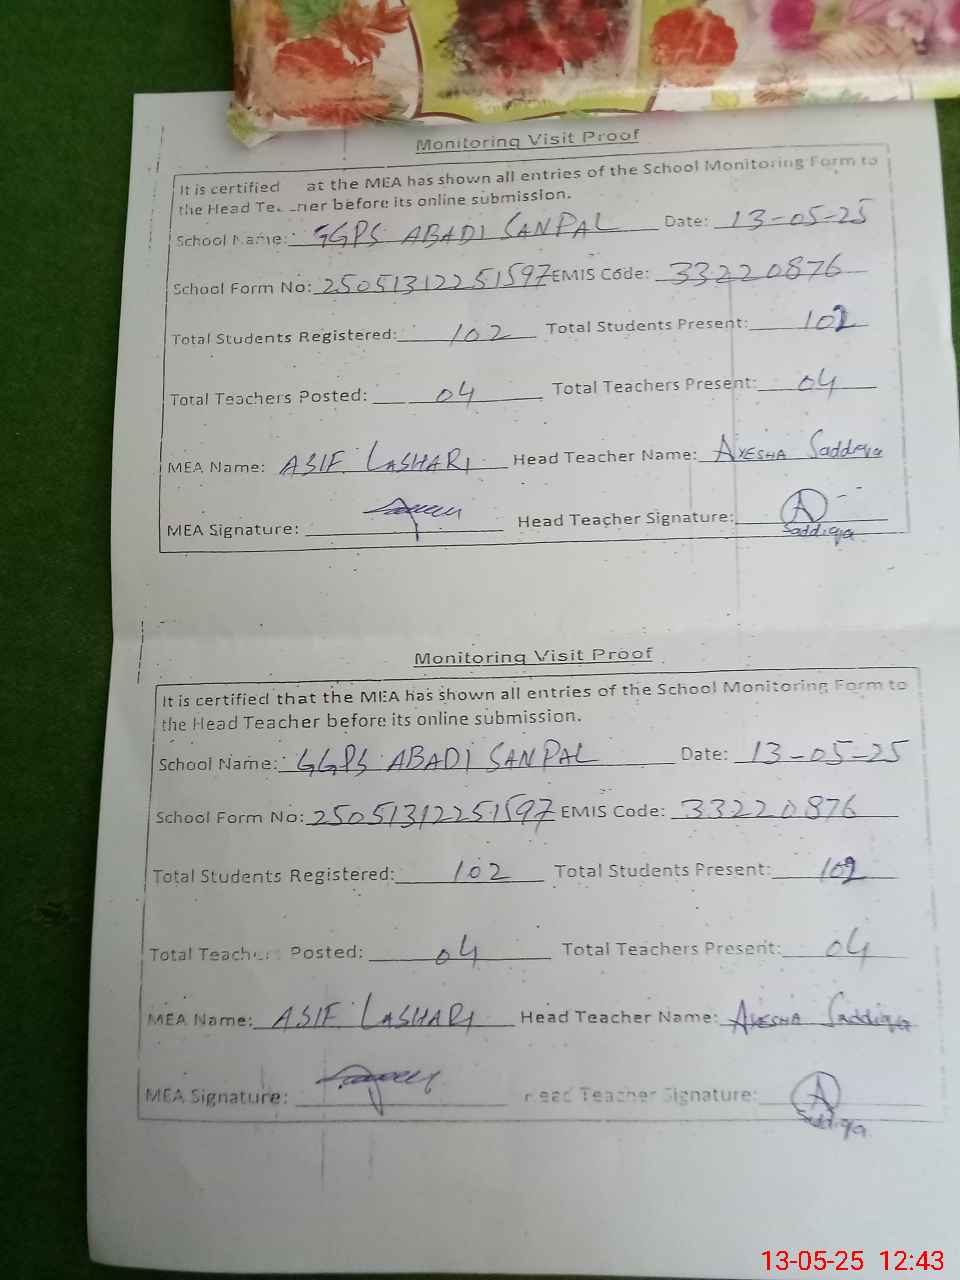 Monitoring Visit Proof
It is certified at the MEA has shown all entries of the School Monitoring Form to
the Head Te. ner before its online submission.
School Name: GGPS ABADI SANPAL Date: 13-05-25
School Form No: 25051312251597 EMIS Code: 33220876
Total Students Registered: 102 Total Students Present: 102
Total Teachers Posted: 04 Total Teachers Present: 04
MEA Name: ASIF LASHARI Head Teacher Name: AYESHA Saddiqa
MEA Signature: Head Teacher Signature: A
Saddiqa
Monitoring Visit Proof
It is certified that the MEA has shown all entries of the School Monitoring Form to
the Head Teacher before its online submission.
School Name: GGPS ABADI SANPAL Date: 13-05-25
School Form No: 25051312251597 EMIS Code: 33220876
Total Students Registered: 102 Total Students Present: 102
Total Teachers Posted: 04 Total Teachers Present: 04
MEA Name: ASIF LASHARI Head Teacher Name: AYESHA Saddiqa
MEA Signature: Head Teacher Signature: A
Saddiqa
13-05-25 12:43